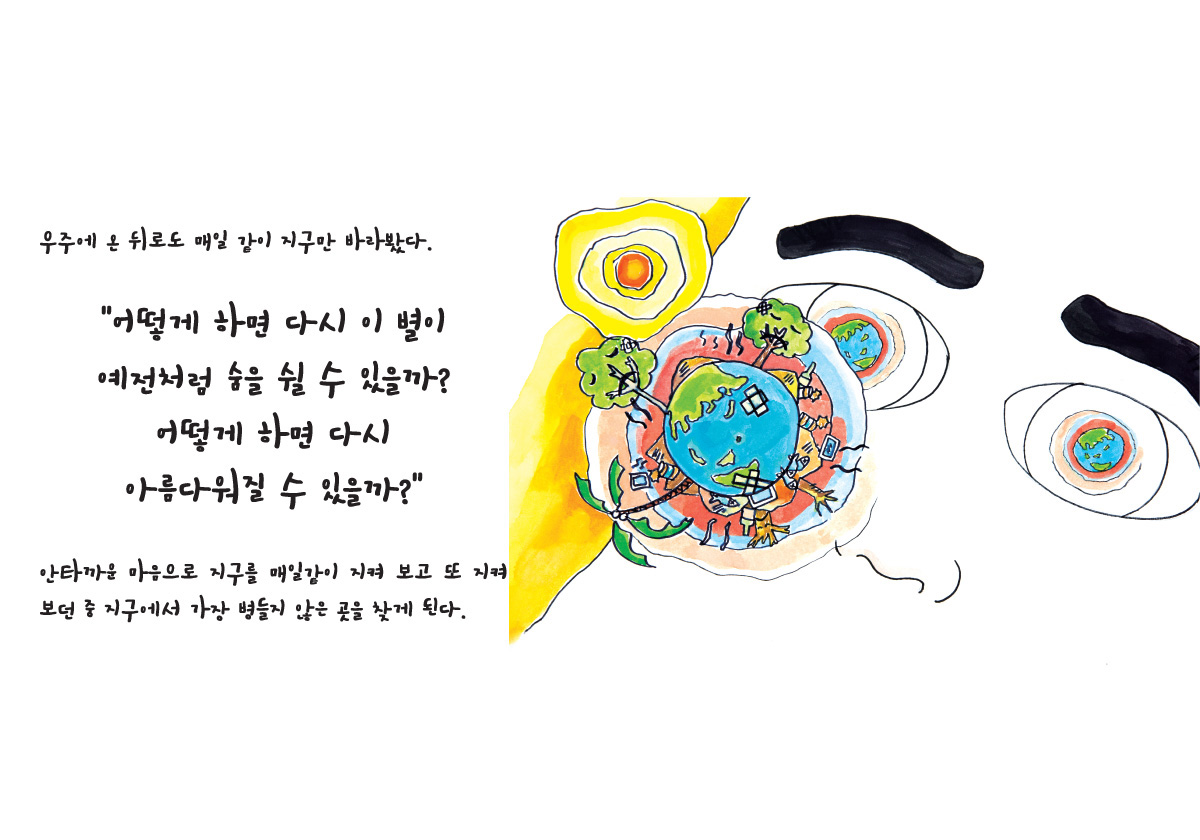 우주에 온 뒤로도 매일 같이 지구만 바라봤다.
"어떻게 하면 다시 이 별이
예전처럼 숨을 쉴 수 있을까?
어떻게 하면 다시
아름다워질 수 있을까?"
안타까운 마음으로 지구를 매일같이 지켜 보고 또 지켜
보던 중 지구에서 가장 병들지 않은 곳을 찾게 된다.